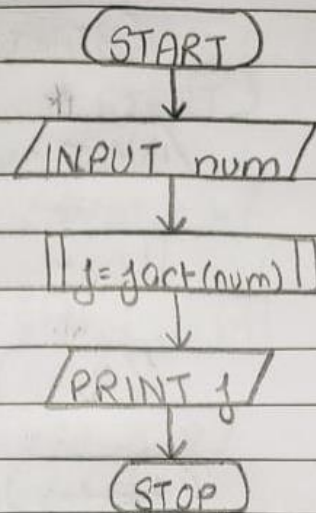 START
INPUT num
f=fact(num)
PRINT f
STOP